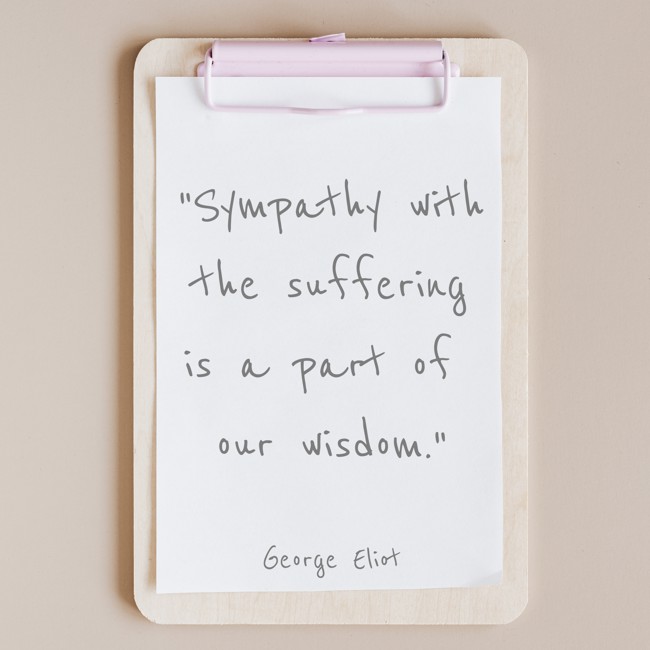 "Sympathy with
the suffering
is a part of
our wisdom."
George Eliot